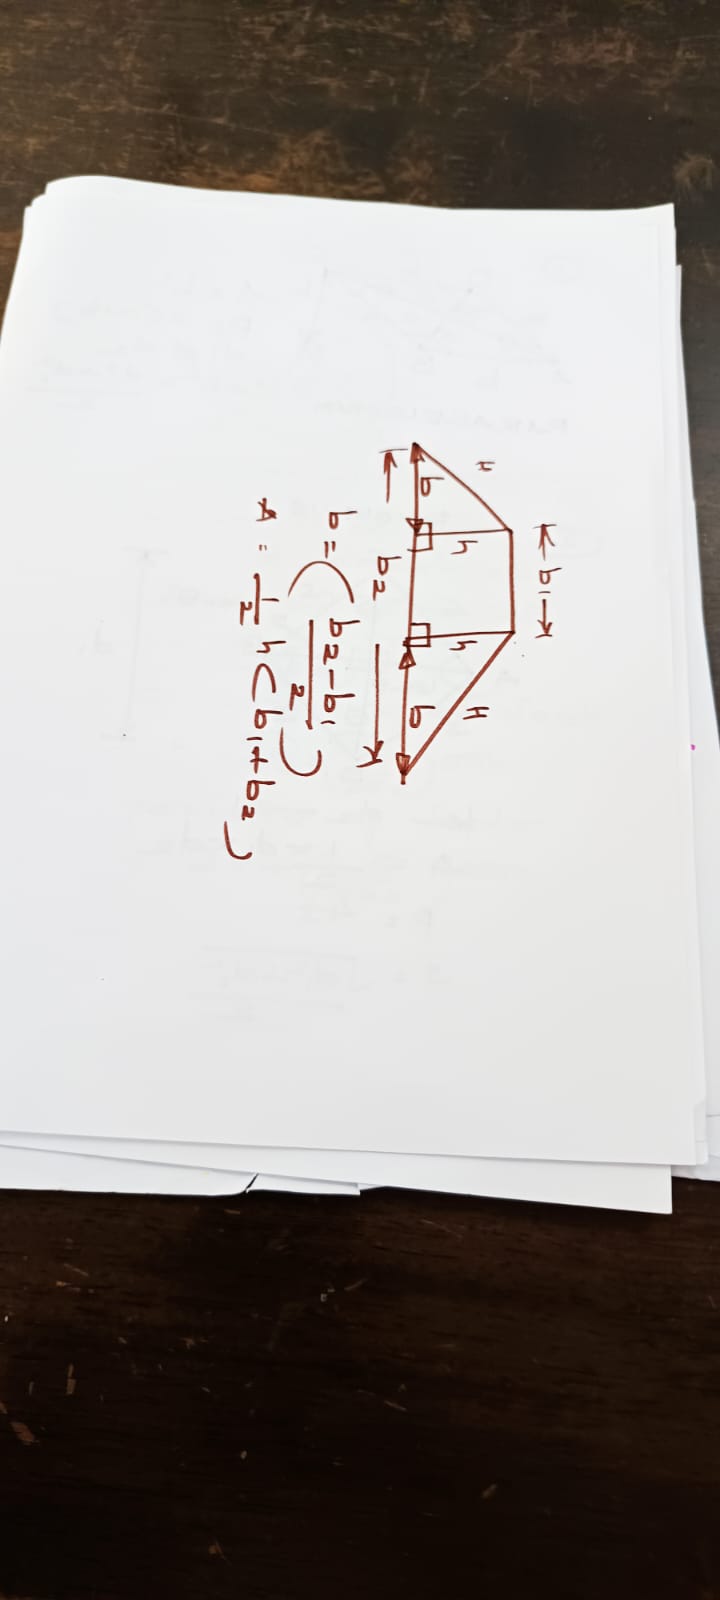 ← b1 →
H h h H
b b
← b2 →
b = (b2 - b1 / 2)
A = 1/2 h (b1 + b2)